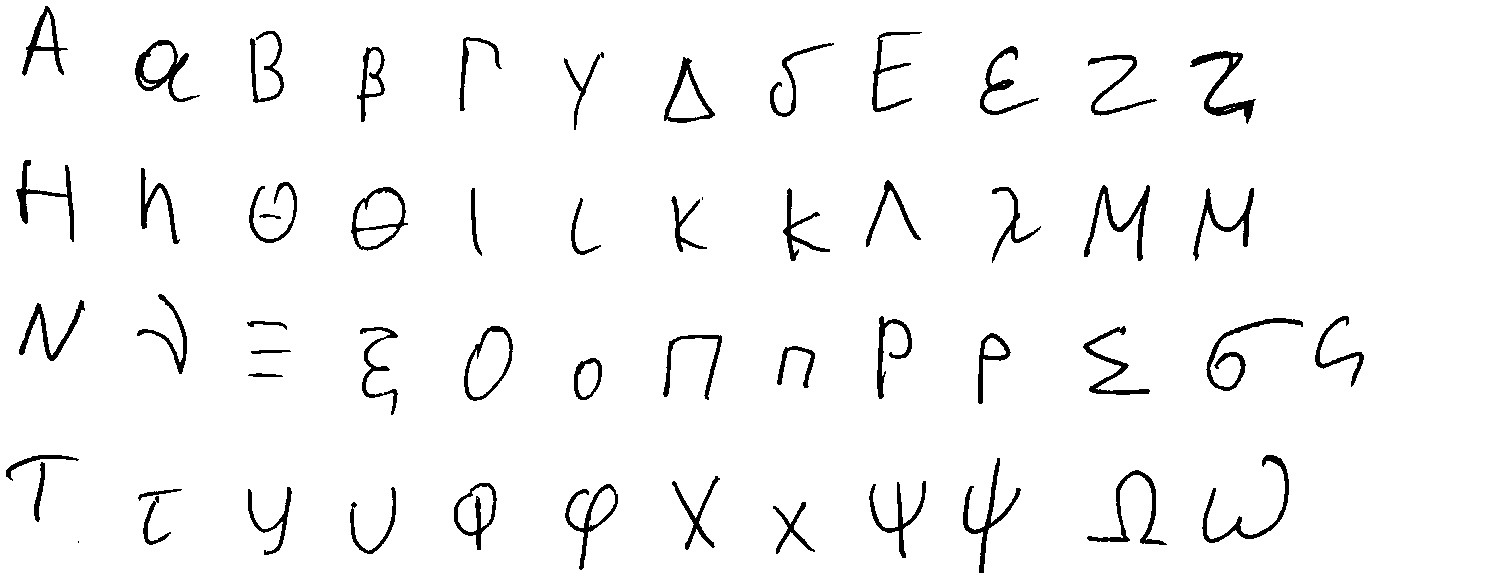 Α α Β β Γ γ Δ δ Ε ε Ζ ζ
Η η Θ θ Ι ι Κ κ Λ λ Μ Μ
Ν ν Ξ ξ Ο ο Π π Ρ ρ Σ σ ς
Τ τ Υ υ Φ φ Χ χ Ψ ψ Ω ω